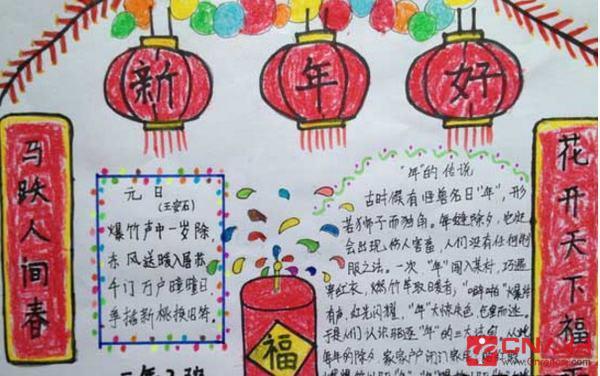 新年好
马跃人间春
元日
(王安石)
爆竹声中一岁除,
东风送暖入屠苏
千门万户曈曈日
争插新桃换旧符。
福
"年"的传说
古时候有怪兽名曰"年",形
若狮子而独角。每逢除夕,也就
会出现,伤人害畜,人们没有任何制
服之法。一次,"年"闯入某村,巧遇
穿红衣,燃竹竿取暖者,"噼啪"爆炸
有声,红光闪耀,"年"大惊失色,
于是人们认识驱逐"年"的三大法
每年的除夕 家家户户闭门
花开天下福
三年2班